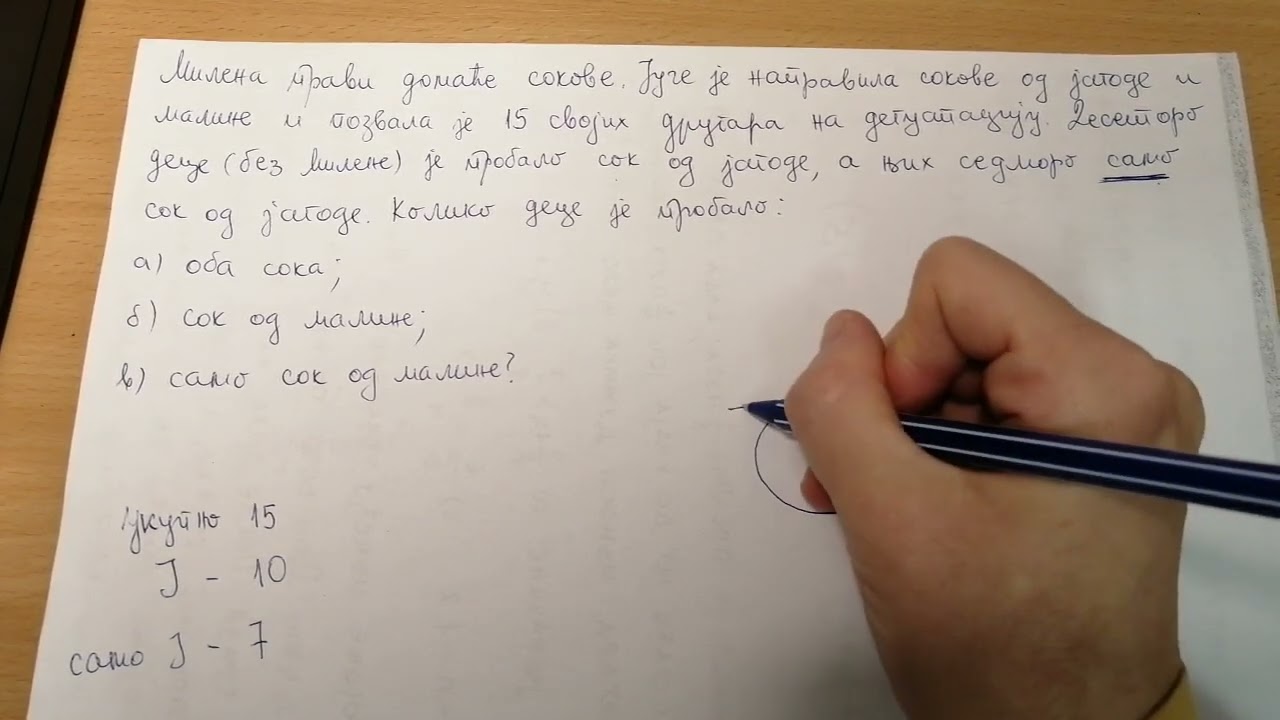 Милена прави домаће сокове. Јуче је направила сокове од јагоде и
малине и позвала је 15 својих другара на дегустацију. Десеторо
деце (без Милене) је пробало сок од јагоде, а њих седморо само
сок од јагоде. Колико деце је пробало:
а) оба сока;
б) сок од малине;
в) само сок од малине?
укупно 15
Ј - 10
само Ј - 7